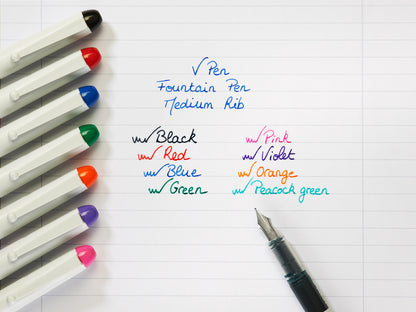 V Pen
Fountain Pen
Medium Nib
Black
Red
Blue
Green
Pink
Violet
Orange
Peacock green